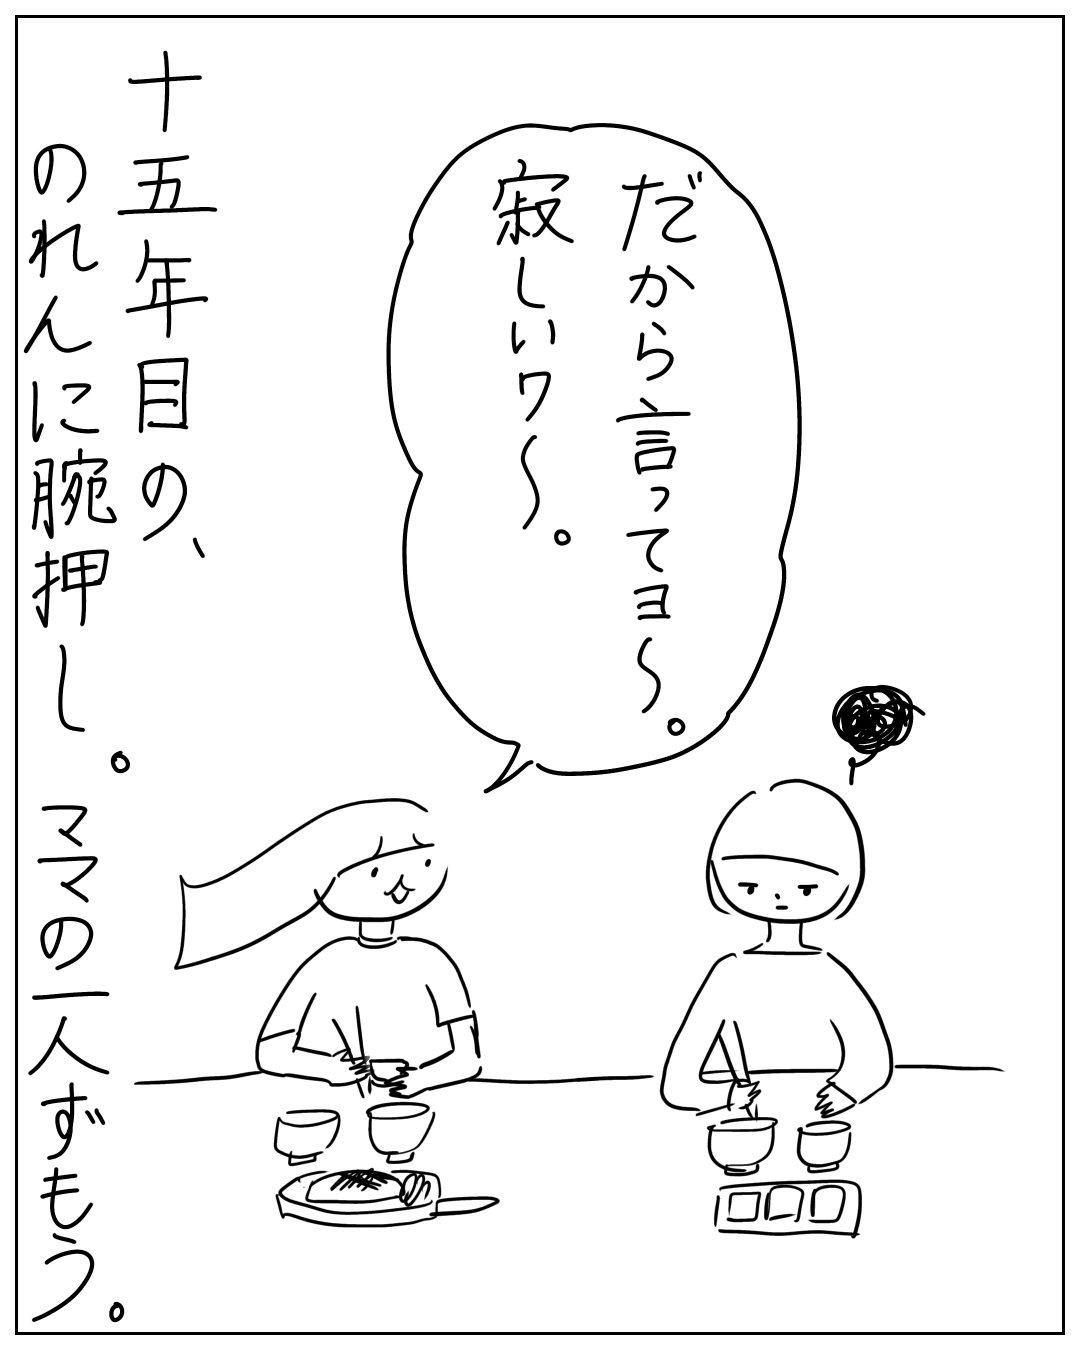 だから言ってヨ〜。
寂しいワ〜。
十五年目の、
のれんに腕押し。ママの一人ずもう。